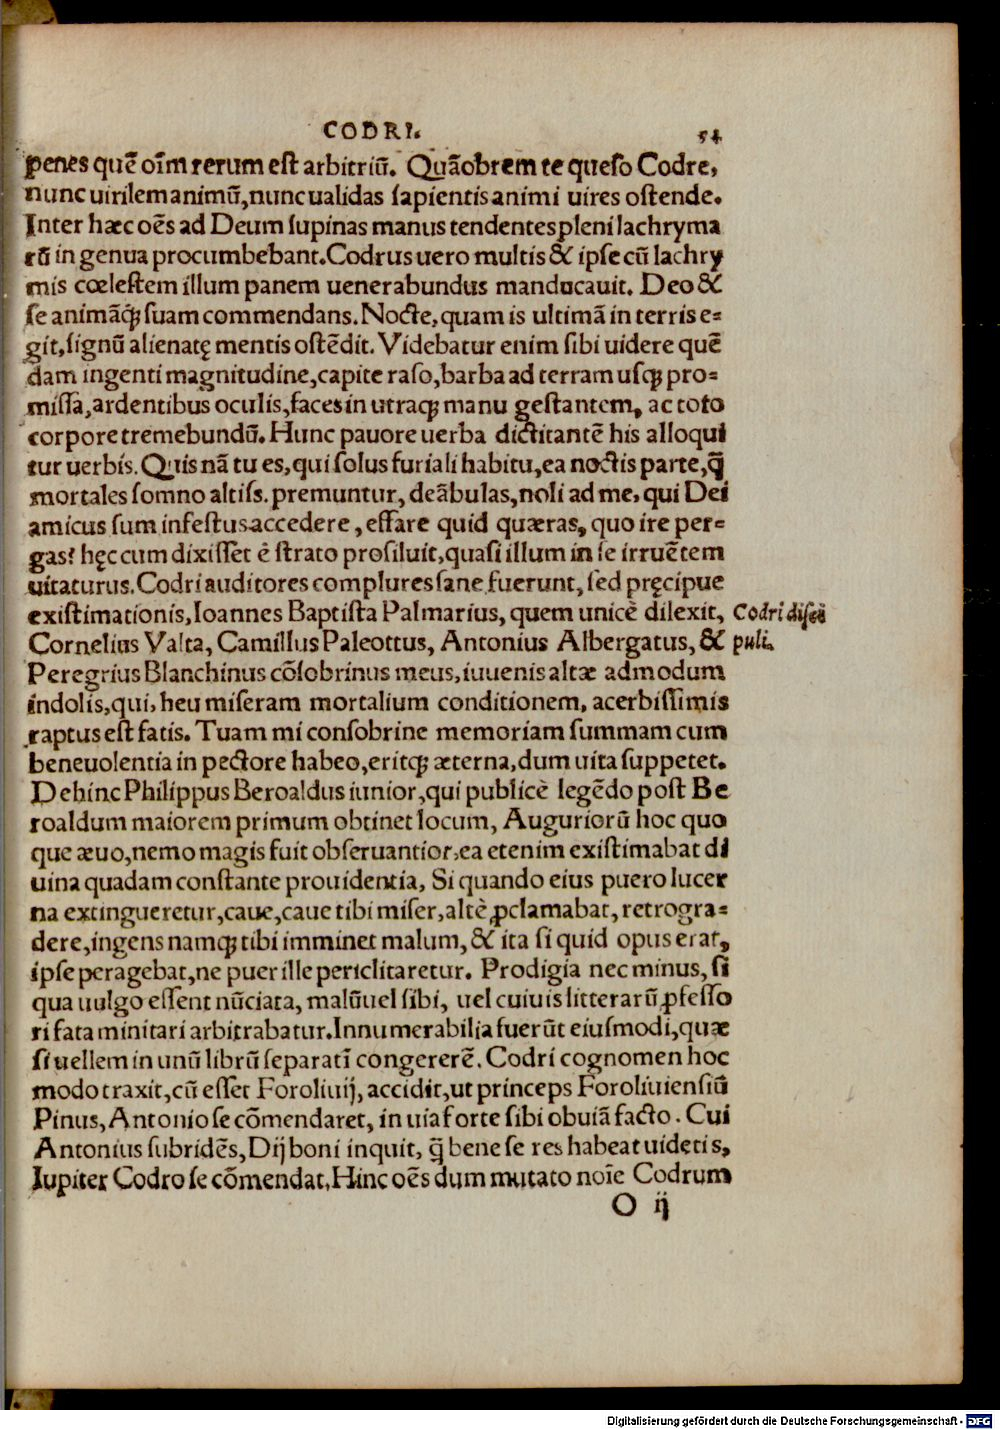 CODRI. 54
penes quē oīm rerum est arbitriū. Quāobrem te queso Codre,
nunc uirilem animū, nunc ualidas sapientis animi uires ostende.
Inter hæc oēs ad Deum supinas manus tendentes pleni lachryma
rū in genua procumbebant. Codrus uero multis & ipse cū lachry
mis cœlestem illum panem uenerabundus manducauit. Deo &
se animāq; suam commendans. Nocte, quam is ultimā in terris e-
git, signū alienatę mentis ostēdit. Videbatur enim sibi uidere quē
dam ingenti magnitudine, capite raso, barba ad terram usq; pro-
missa, ardentibus oculis, faces in utraq; manu gestantem, ac toto
corpore tremebundū. Hunc pauore uerba dictitantē his alloqui
tur uerbis. Quis nā tu es, qui solus furiali habitu, ea noctis parte, q̄
mortales somno altiss. premuntur, deābulas, noli ad me, qui Dei
amicus sum infestus accedere, effare quid quæras, quo ire per-
gas? hęc cum dixisset è strato prosiluit, quasi illum in se irruētem
uitaturus. Codri auditores complures sane fuerunt, sed pręcipue
existimationis, Ioannes Baptista Palmarius, quem unicè dilexit, Codri discí
Cornelius Valta, Camillus Paleottus, Antonius Albergatus, & puli.
Peregrius Blanchinus cōsobrinus meus, iuuenis altæ admodum
indolis, qui, heu miseram mortalium conditionem, acerbissimis
raptus est fatis. Tuam mi consobrine memoriam summam cum
beneuolentia in pectore habeo, eritq; æterna, dum uita suppetet.
Dehinc Philippus Beroaldus iunior, qui publicè legēdo post Be
roaldum maiorem primum obtinet locum, Auguriorū hoc quo
que æuo, nemo magis fuit obseruantior, ea etenim existimabat di
uina quadam constante prouidentia, Si quando eius puero lucer
na extingueretur, caue, caue tibi miser, altè ꝓclamabat, retrogra-
dere, ingens namq; tibi imminet malum, & ita si quid opus erat,
ipse peragebat, ne puer ille periclitaretur. Prodigia nec minus, si
qua uulgo essent nūciata, malū uel sibi, uel cuiuis litterarū ꝓfesso
ri fata minitari arbitrabatur. Innumerabilia fuerūt eiusmodi, quæ
si uellem in unū librū separatī congererē. Codri cognomen hoc
modo traxit, cū esset Foroliuij, accidit, ut princeps Foroliuiensiū
Pinus, Antonio se cōmendaret, in uia forte sibi obuiā facto. Cui
Antonius subridēs, Dij boni inquit, q̄ bene se res habeat uidetis,
Iupiter Codro se cōmendat, Hinc oēs dum mutato noīe Codrum
O ij
Digitalisierung gefördert durch die Deutsche Forschungsgemeinschaft - DFG